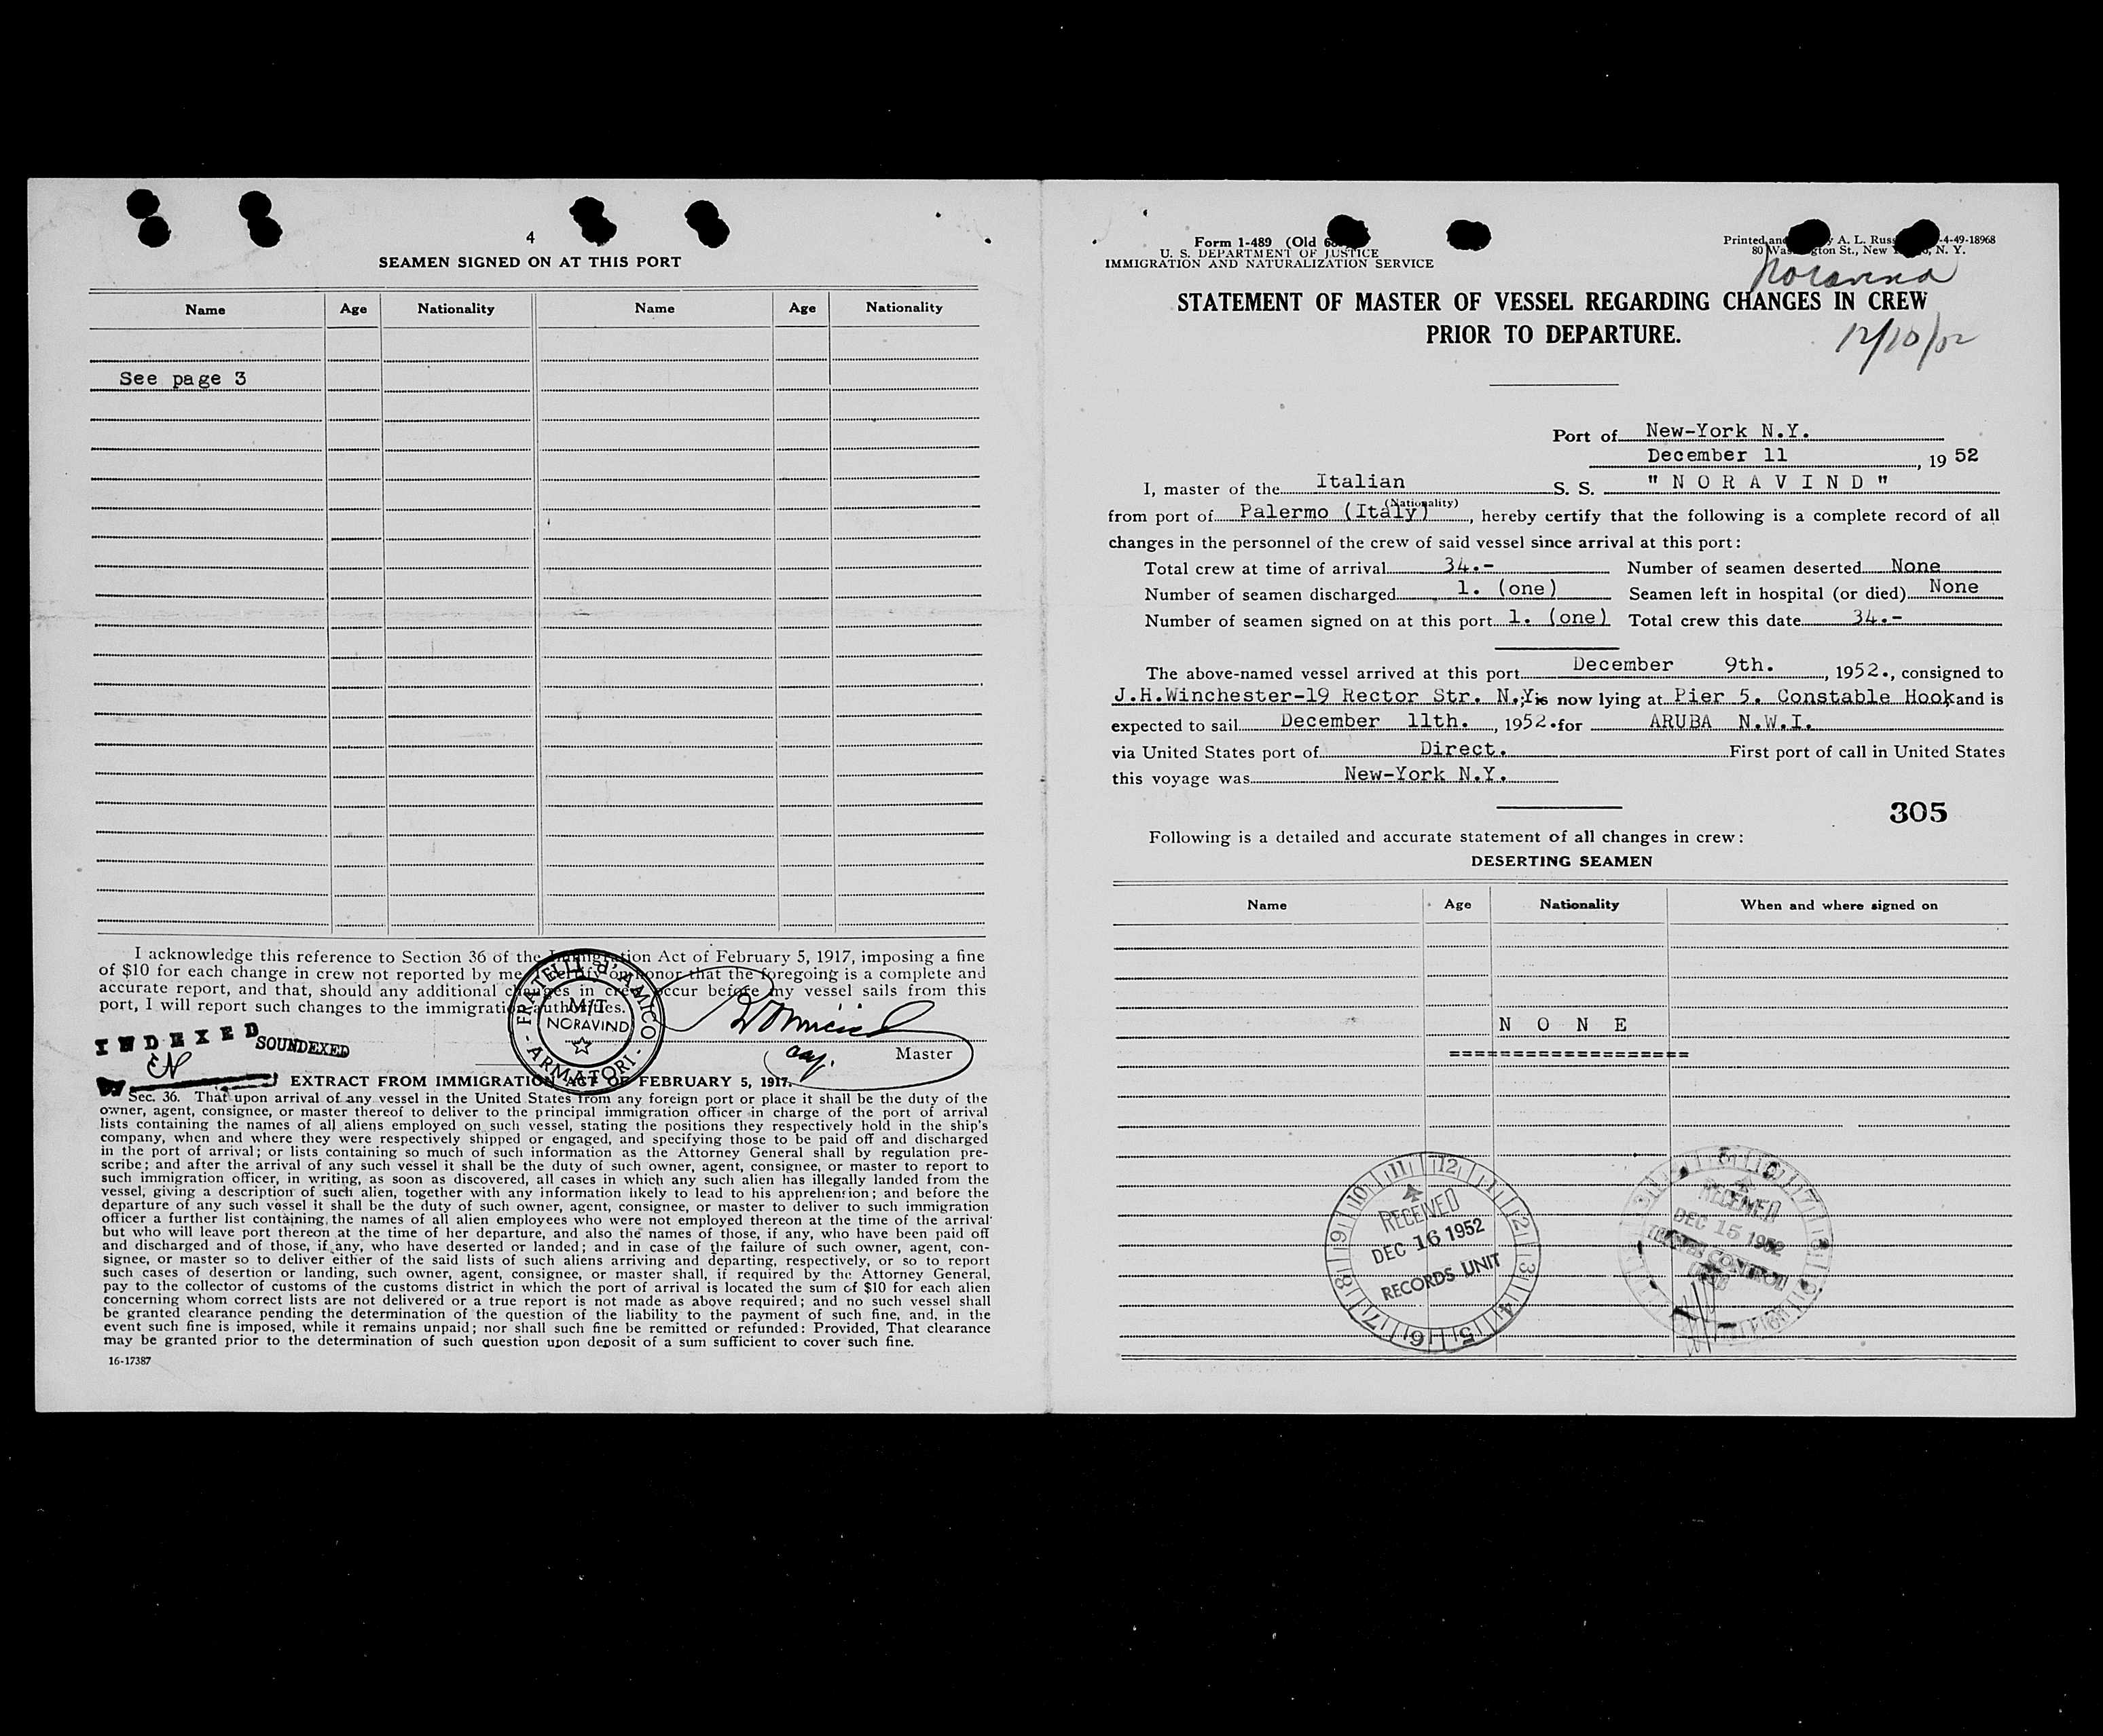 4
SEAMEN SIGNED ON AT THIS PORT
Name Age Nationality Name Age Nationality
See page 3
I acknowledge this reference to Section 36 of the Immigration Act of February 5, 1917, imposing a fine
of $10 for each change in crew not reported by me, certify on honor that the foregoing is a complete and
accurate report, and that, should any additional changes in crew occur before my vessel sails from this
port, I will report such changes to the immigration authorities.
FRATELLI d'AMICO
M/T
NORAVIND
- ARMATORI -
INDEXED
SOUNDEXED
Master
EXTRACT FROM IMMIGRATION ACT OF FEBRUARY 5, 1917.
Sec. 36. That upon arrival of any vessel in the United States from any foreign port or place it shall be the duty of the
owner, agent, consignee, or master thereof to deliver to the principal immigration officer in charge of the port of arrival
lists containing the names of all aliens employed on such vessel, stating the positions they respectively hold in the ship's
company, when and where they were respectively shipped or engaged, and specifying those to be paid off and discharged
in the port of arrival; or lists containing so much of such information as the Attorney General shall by regulation pre-
scribe; and after the arrival of any such vessel it shall be the duty of such owner, agent, consignee, or master to report to
such immigration officer, in writing, as soon as discovered, all cases in which any such alien has illegally landed from the
vessel, giving a description of such alien, together with any information likely to lead to his apprehension; and before the
departure of any such vessel it shall be the duty of such owner, agent, consignee, or master to deliver to such immigration
officer a further list containing the names of all alien employees who were not employed thereon at the time of the arrival
but who will leave port thereon at the time of her departure, and also the names of those, if any, who have been paid off
and discharged and of those, if any, who have deserted or landed; and in case of the failure of such owner, agent, con-
signee, or master so to deliver either of the said lists of such aliens arriving and departing, respectively, or so to report
such cases of desertion or landing, such owner, agent, consignee, or master shall, if required by the Attorney General,
pay to the collector of customs of the customs district in which the port of arrival is located the sum of $10 for each alien
concerning whom correct lists are not delivered or a true report is not made as above required; and no such vessel shall
be granted clearance pending the determination of the question of the liability to the payment of such fine, and, in the
event such fine is imposed, while it remains unpaid; nor shall such fine be remitted or refunded: Provided, That clearance
may be granted prior to the determination of such question upon deposit of a sum sufficient to cover such fine.
16-17387
Form I-489 (Old
U. S. DEPARTMENT OF JUSTICE
IMMIGRATION AND NATURALIZATION SERVICE
Printed and A. L. Russ -4-49-18968
80 Washington St., New N. Y.
Noravind
STATEMENT OF MASTER OF VESSEL REGARDING CHANGES IN CREW
PRIOR TO DEPARTURE.
12/10/52
Port of New-York N.Y.
December 11, 1952
I, master of the Italian S. S. "NORAVIND"
(Nationality)
from port of Palermo (Italy), hereby certify that the following is a complete record of all
changes in the personnel of the crew of said vessel since arrival at this port:
Total crew at time of arrival 34.- Number of seamen deserted None
Number of seamen discharged 1. (one) Seamen left in hospital (or died) None
Number of seamen signed on at this port 1. (one) Total crew this date 34.-
The above-named vessel arrived at this port December 9th., 1952., consigned to
J.H.Winchester-19 Rector Str. N.Y. is now lying at Pier 5. Constable Hook and is
expected to sail December 11th., 1952. for ARUBA N.W.I.
via United States port of Direct. First port of call in United States
this voyage was New-York N.Y.
305
Following is a detailed and accurate statement of all changes in crew:
DESERTING SEAMEN
Name Age Nationality When and where signed on
N O N E
==================
RECEIVED
DEC 16 1952
RECORDS UNIT
RECEIVED
DEC 15 1952
CONTROL